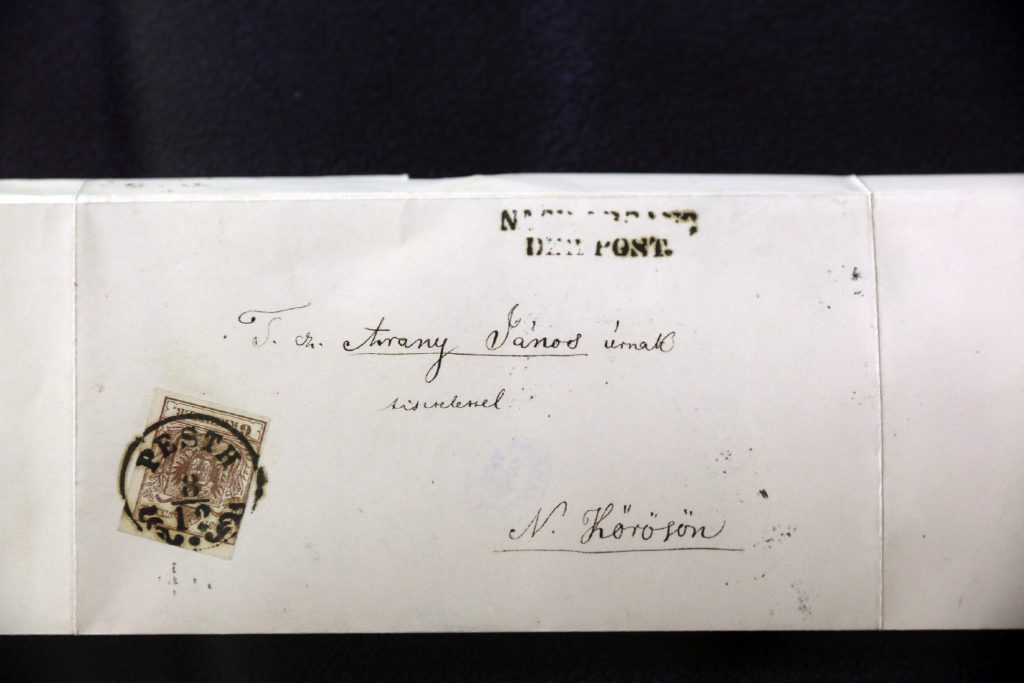 DER POST.
T. cz. Arany János úrnak
tisztelettel
N. Kőrösön
PESTH
8
12